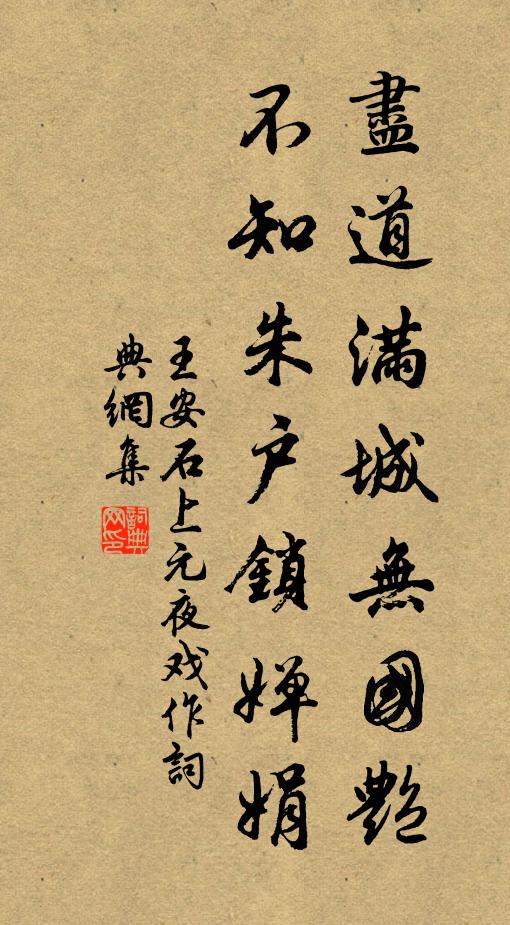 盡道滿城無國艷
不知朱户鎖嬋娟
王安石上元夜戏作詞
典網集
詞典网印